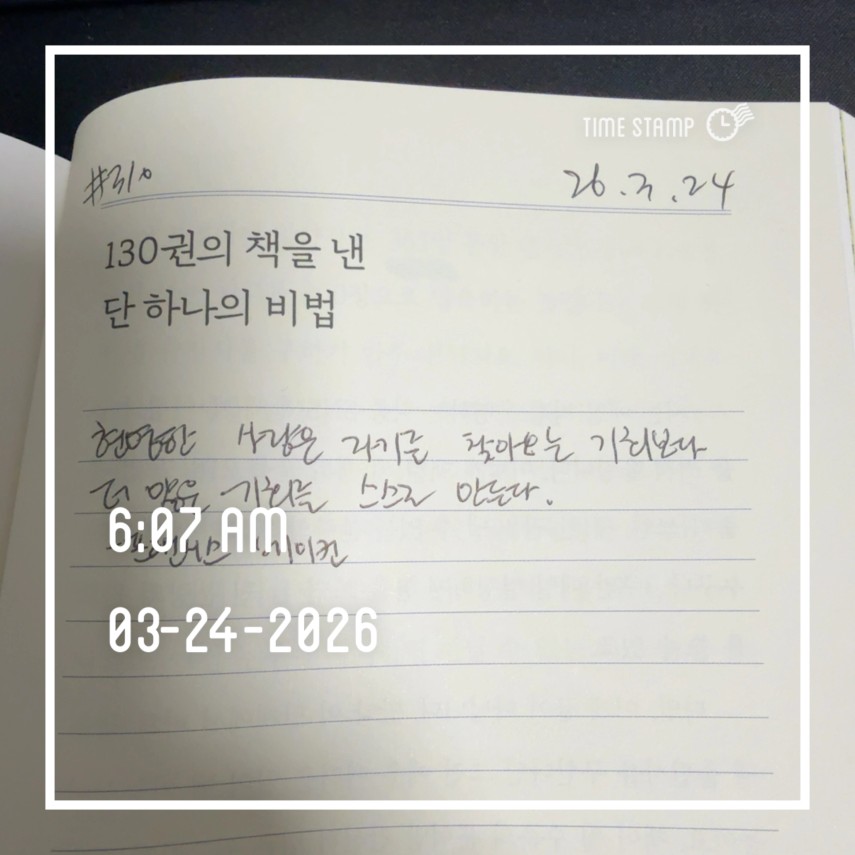 TIME STAMP
#310
26.3.24
130권의 책을 낸
단 하나의 비법
현명한 사람은 자기를 찾아오는 기회보다
더 많은 기회를 스스로 만든다.
6:07 AM
베이컨
03-24-2026